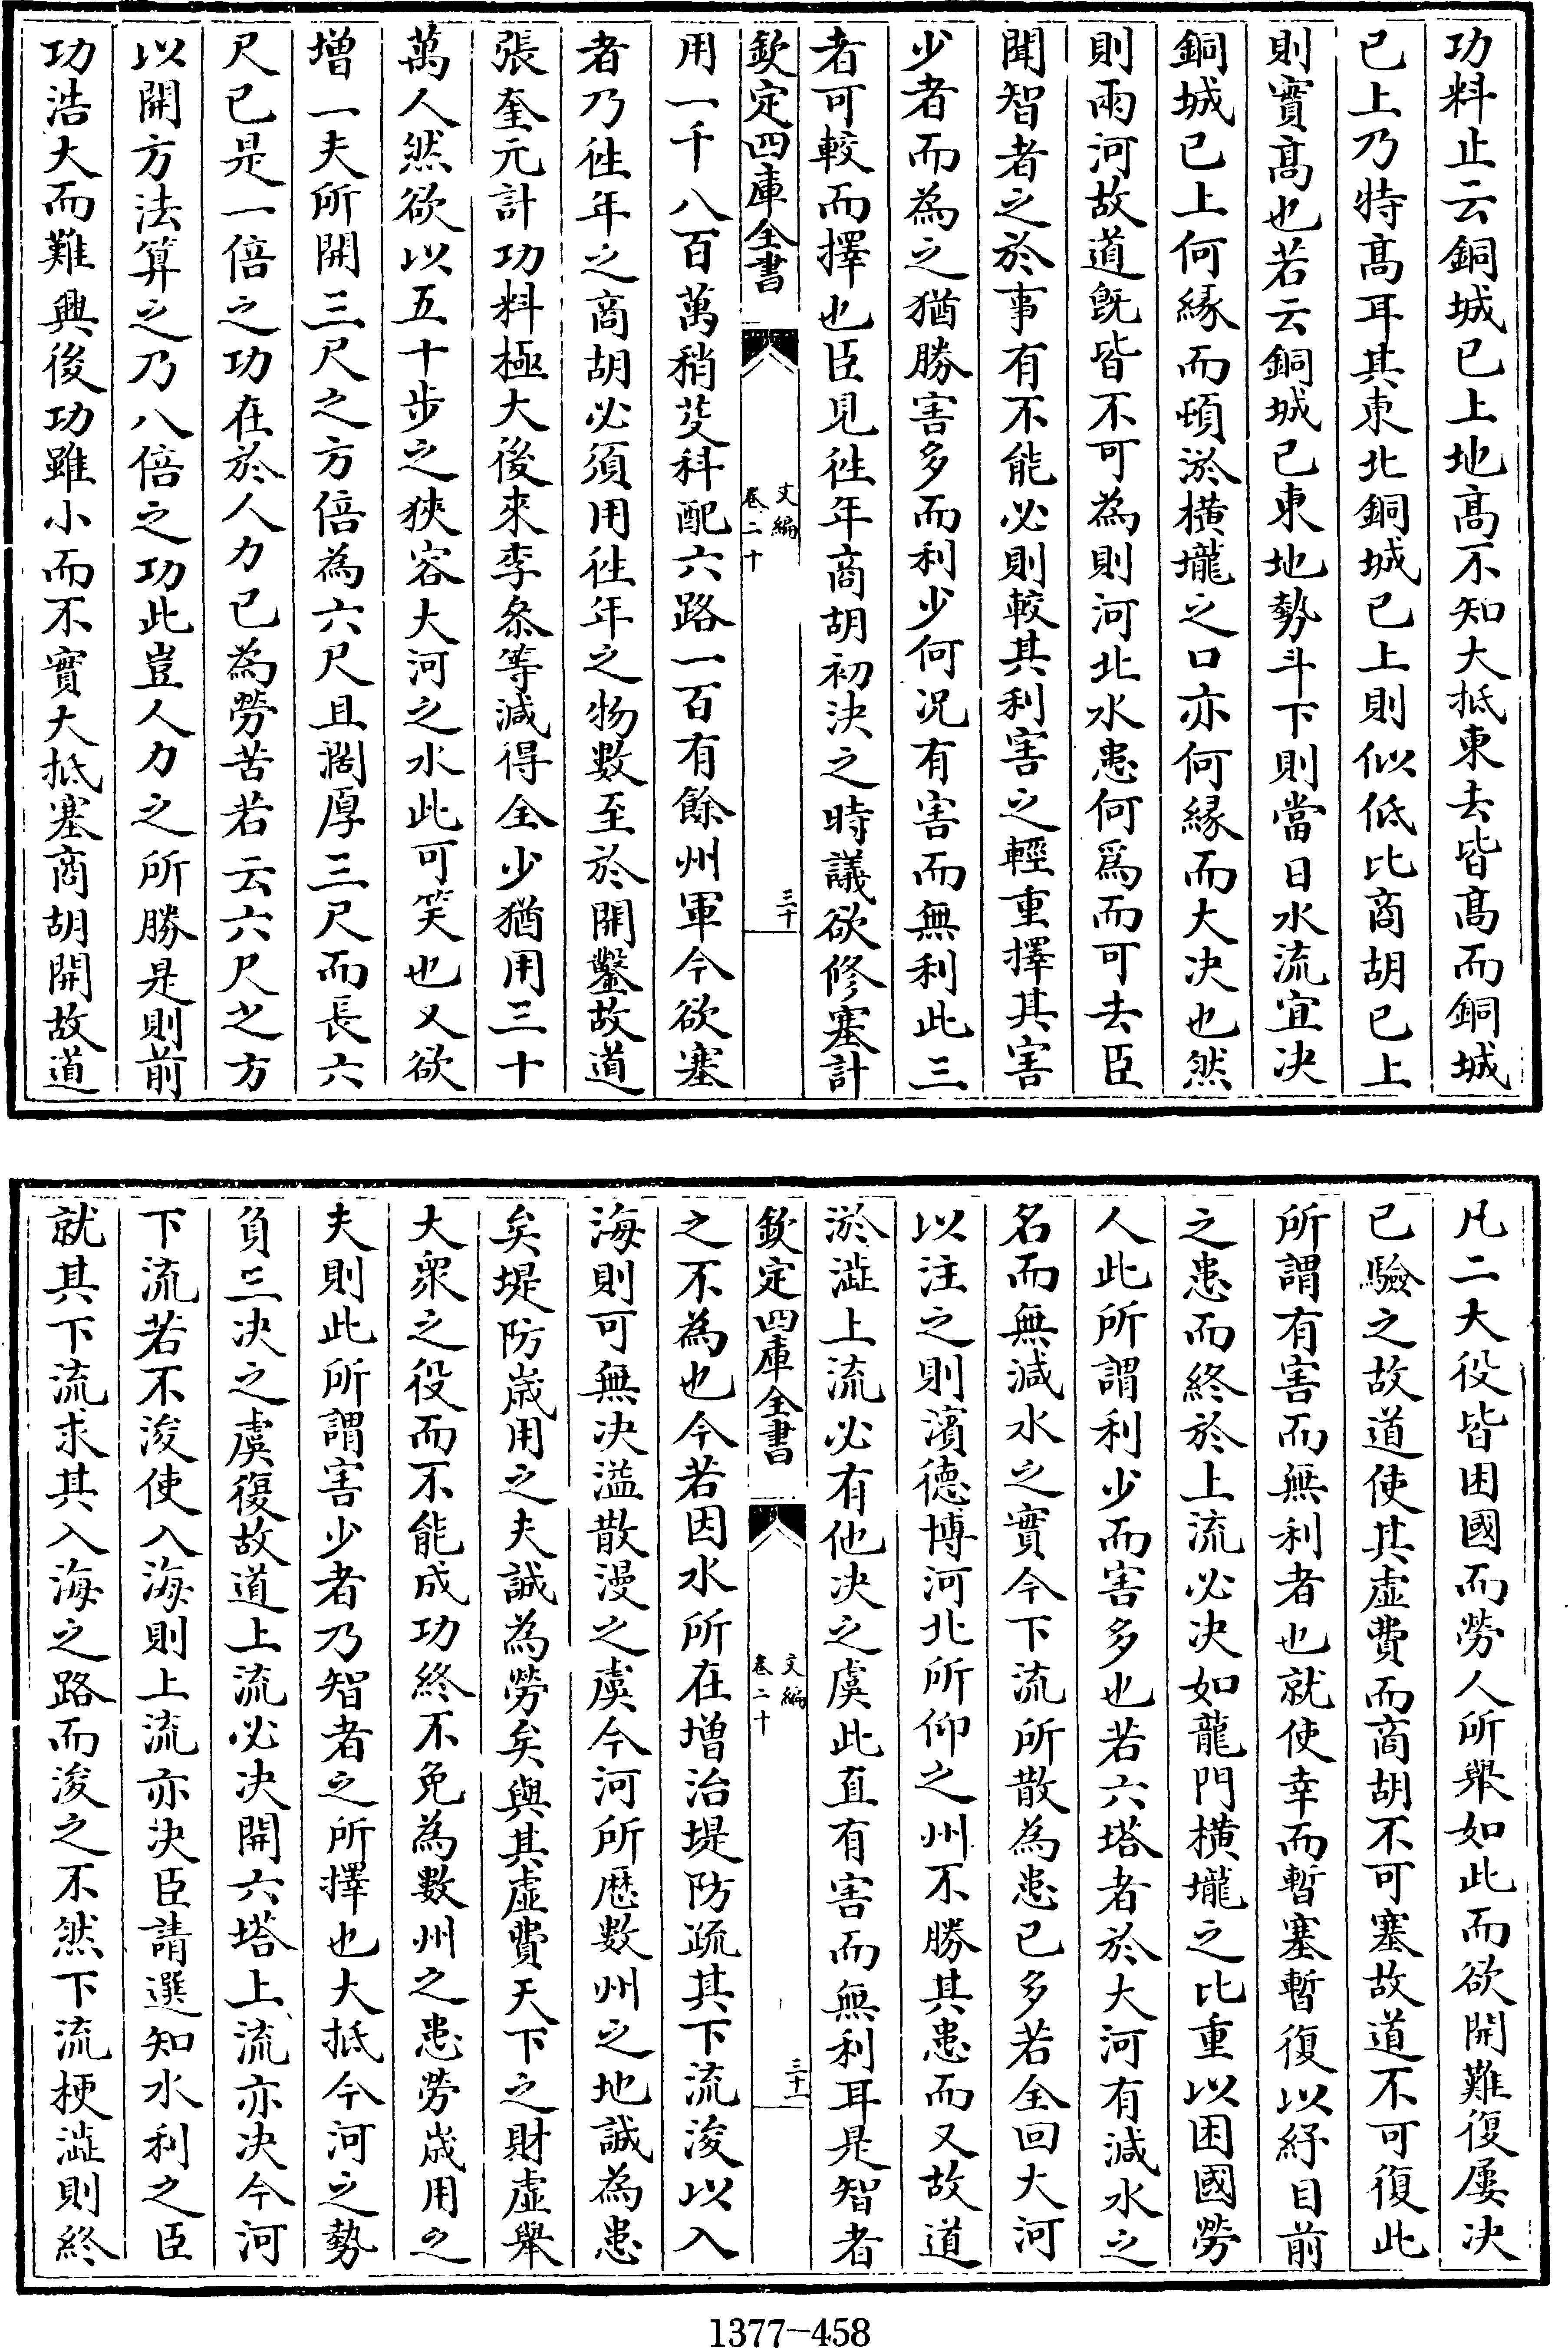 功料止云銅城已上地髙不知大抵東去皆髙而銅城
已上乃特髙耳其東北銅城已上則似低比商胡已上
則實髙也若云銅城已東地勢斗下則當日水流宜决
銅城已上何縁而頓淤橫壠之口亦何縁而大决也然
則兩河故道旣皆不可為則河北水患何爲而可去臣
聞智者之於事有不能必則較其利害之輕重擇其害
少者而為之猶勝害多而利少何况有害而無利此三
者可較而擇也臣見徃年商胡初决之時議欲修塞計
欽定四庫全書
文編
卷二十
三十
用一千八百萬稍芟科配六路一百有餘州軍今欲塞
者乃徃年之商胡必須用徃年之物數至於開鑿故道
張奎元計功料極大後來李叅等減得全少猶用三十
萬人然欲以五十步之狹容大河之水此可笑也又欲
增一夫所開三尺之方倍為六尺且濶厚三尺而長六
尺已是一倍之功在於人力已為勞苦若云六尺之方
以開方法算之乃八倍之功此豈人力之所勝是則前
功浩大而難興後功雖小而不實大抵塞商胡開故道
凡二大役皆困國而勞人所舉如此而欲開難復屢决
已驗之故道使其虛費而商胡不可塞故道不可復此
所謂有害而無利者也就使幸而暫塞暫復以紓目前
之患而終於上流必决如龍門橫壠之比重以困國勞
人此所謂利少而害多也若六塔者於大河有減水之
名而無減水之實今下流所散為患已多若全回大河
以注之則濱德博河北所仰之州不勝其患而又故道
淤澁上流必有他决之虞此直有害而無利耳是智者
欽定四庫全書
文編
卷二十
三十一
之不為也今若因水所在增治堤防疏其下流浚以入
海則可無决溢散漫之虞今河所歴數州之地誠為患
矣堤防嵗用之夫誠為勞矣與其虛費天下之財虛舉
大衆之役而不能成功終不免為數州之患勞嵗用之
夫則此所謂害少者乃智者之所擇也大抵今河之勢
負三决之虞復故道上流必决開六塔上流亦决今河
下流若不浚使入海則上流亦决臣請選知水利之臣
就其下流求其入海之路而浚之不然下流梗澁則終
1377-458